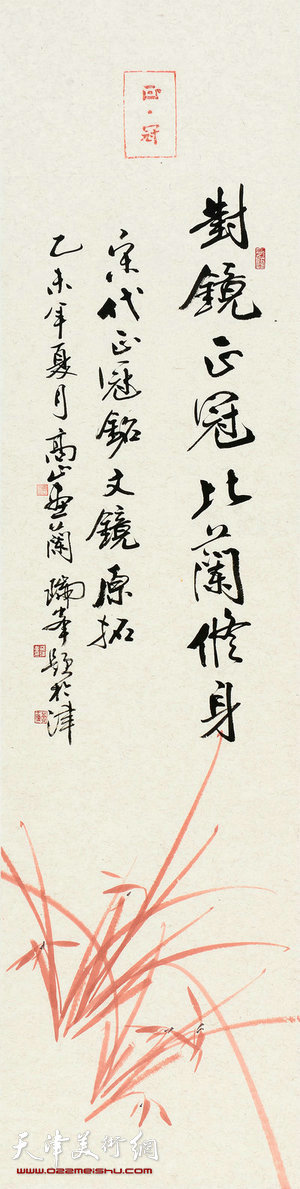 正·冠
對鏡正冠比蘭修身
宋代正冠銘文鏡原拓
乙未年夏月高山画蘭瑞峯題於津
天津美術網
www.022meishu.com